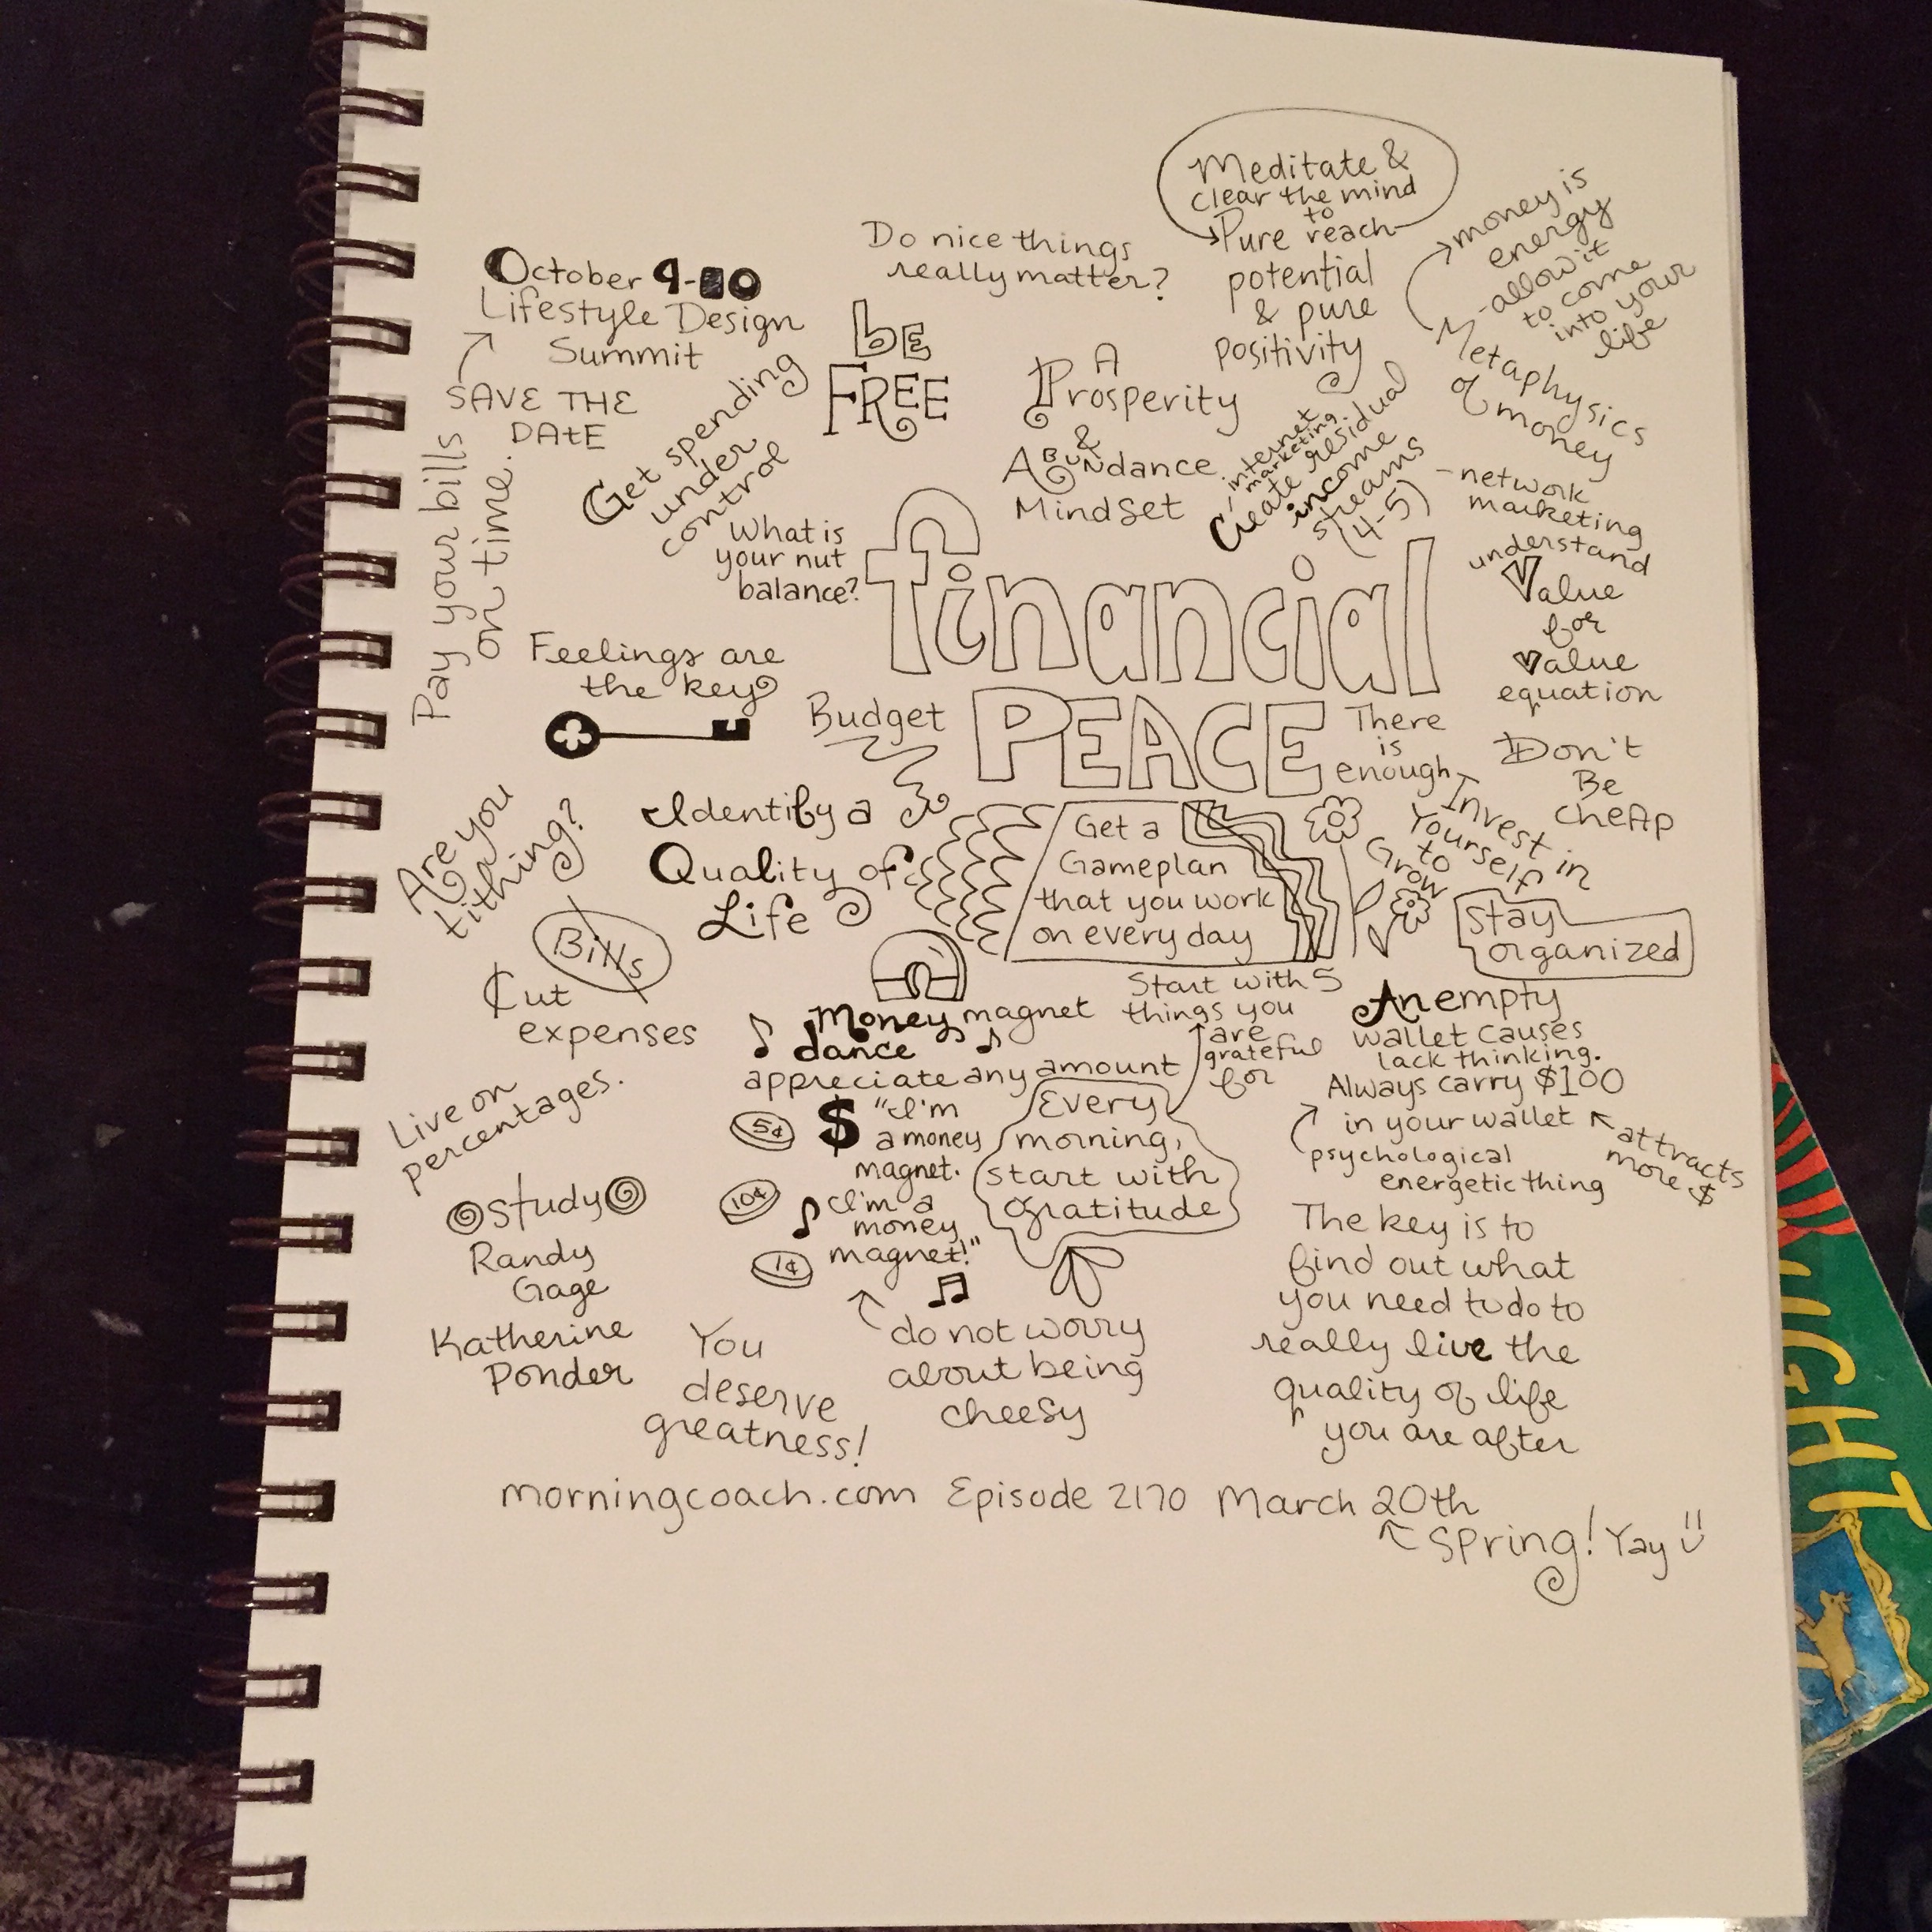 Meditate &
clear the mind
to
Pure reach
potential
& pure
positivity
money is
energy
-allow it
to come
into your
life
Metaphysics
of money
Do nice things
really matter?
October 9-10
Lifestyle Design
Summit
SAVE THE
DAtE
be
FREE
A
Prosperity
&
ABUNdance
MindSet
Get spending
under
control
Pay your bills
on time.
What is
your nut
balance?
internet
marketing
Create residual
income
streams
(4-5)
-network
marketing
understand
Value
for
Value
equation
financial
PEACE
Feelings are
the key
Budget
There
is
enough
Don't
Be
cheAp
Invest in
Yourself
to
Grow
Identify a
Quality of
Life
Get a
Gameplan
that you work
on every day
Are you
tithing?
Bills
Cut
expenses
stay
organized
Money magnet
dance
appreciate any amount
Start with 5
things you
are
grateful
for
An empty
wallet causes
lack thinking.
Always carry $100
in your wallet
attracts
more $
psychological
energetic thing
Live on
percentages.
5¢
$
"I'm
a money
magnet.
10¢
I'm a
money
magnet!"
1¢
Every
morning,
start with
gratitude
study
Randy
Gage
Katherine
Ponder
You
deserve
greatness!
do not worry
about being
cheesy
The key is to
find out what
you need to do to
really live the
quality of life
you are after
morningcoach.com Episode 2170 March 20th
Spring! Yay
UGHT